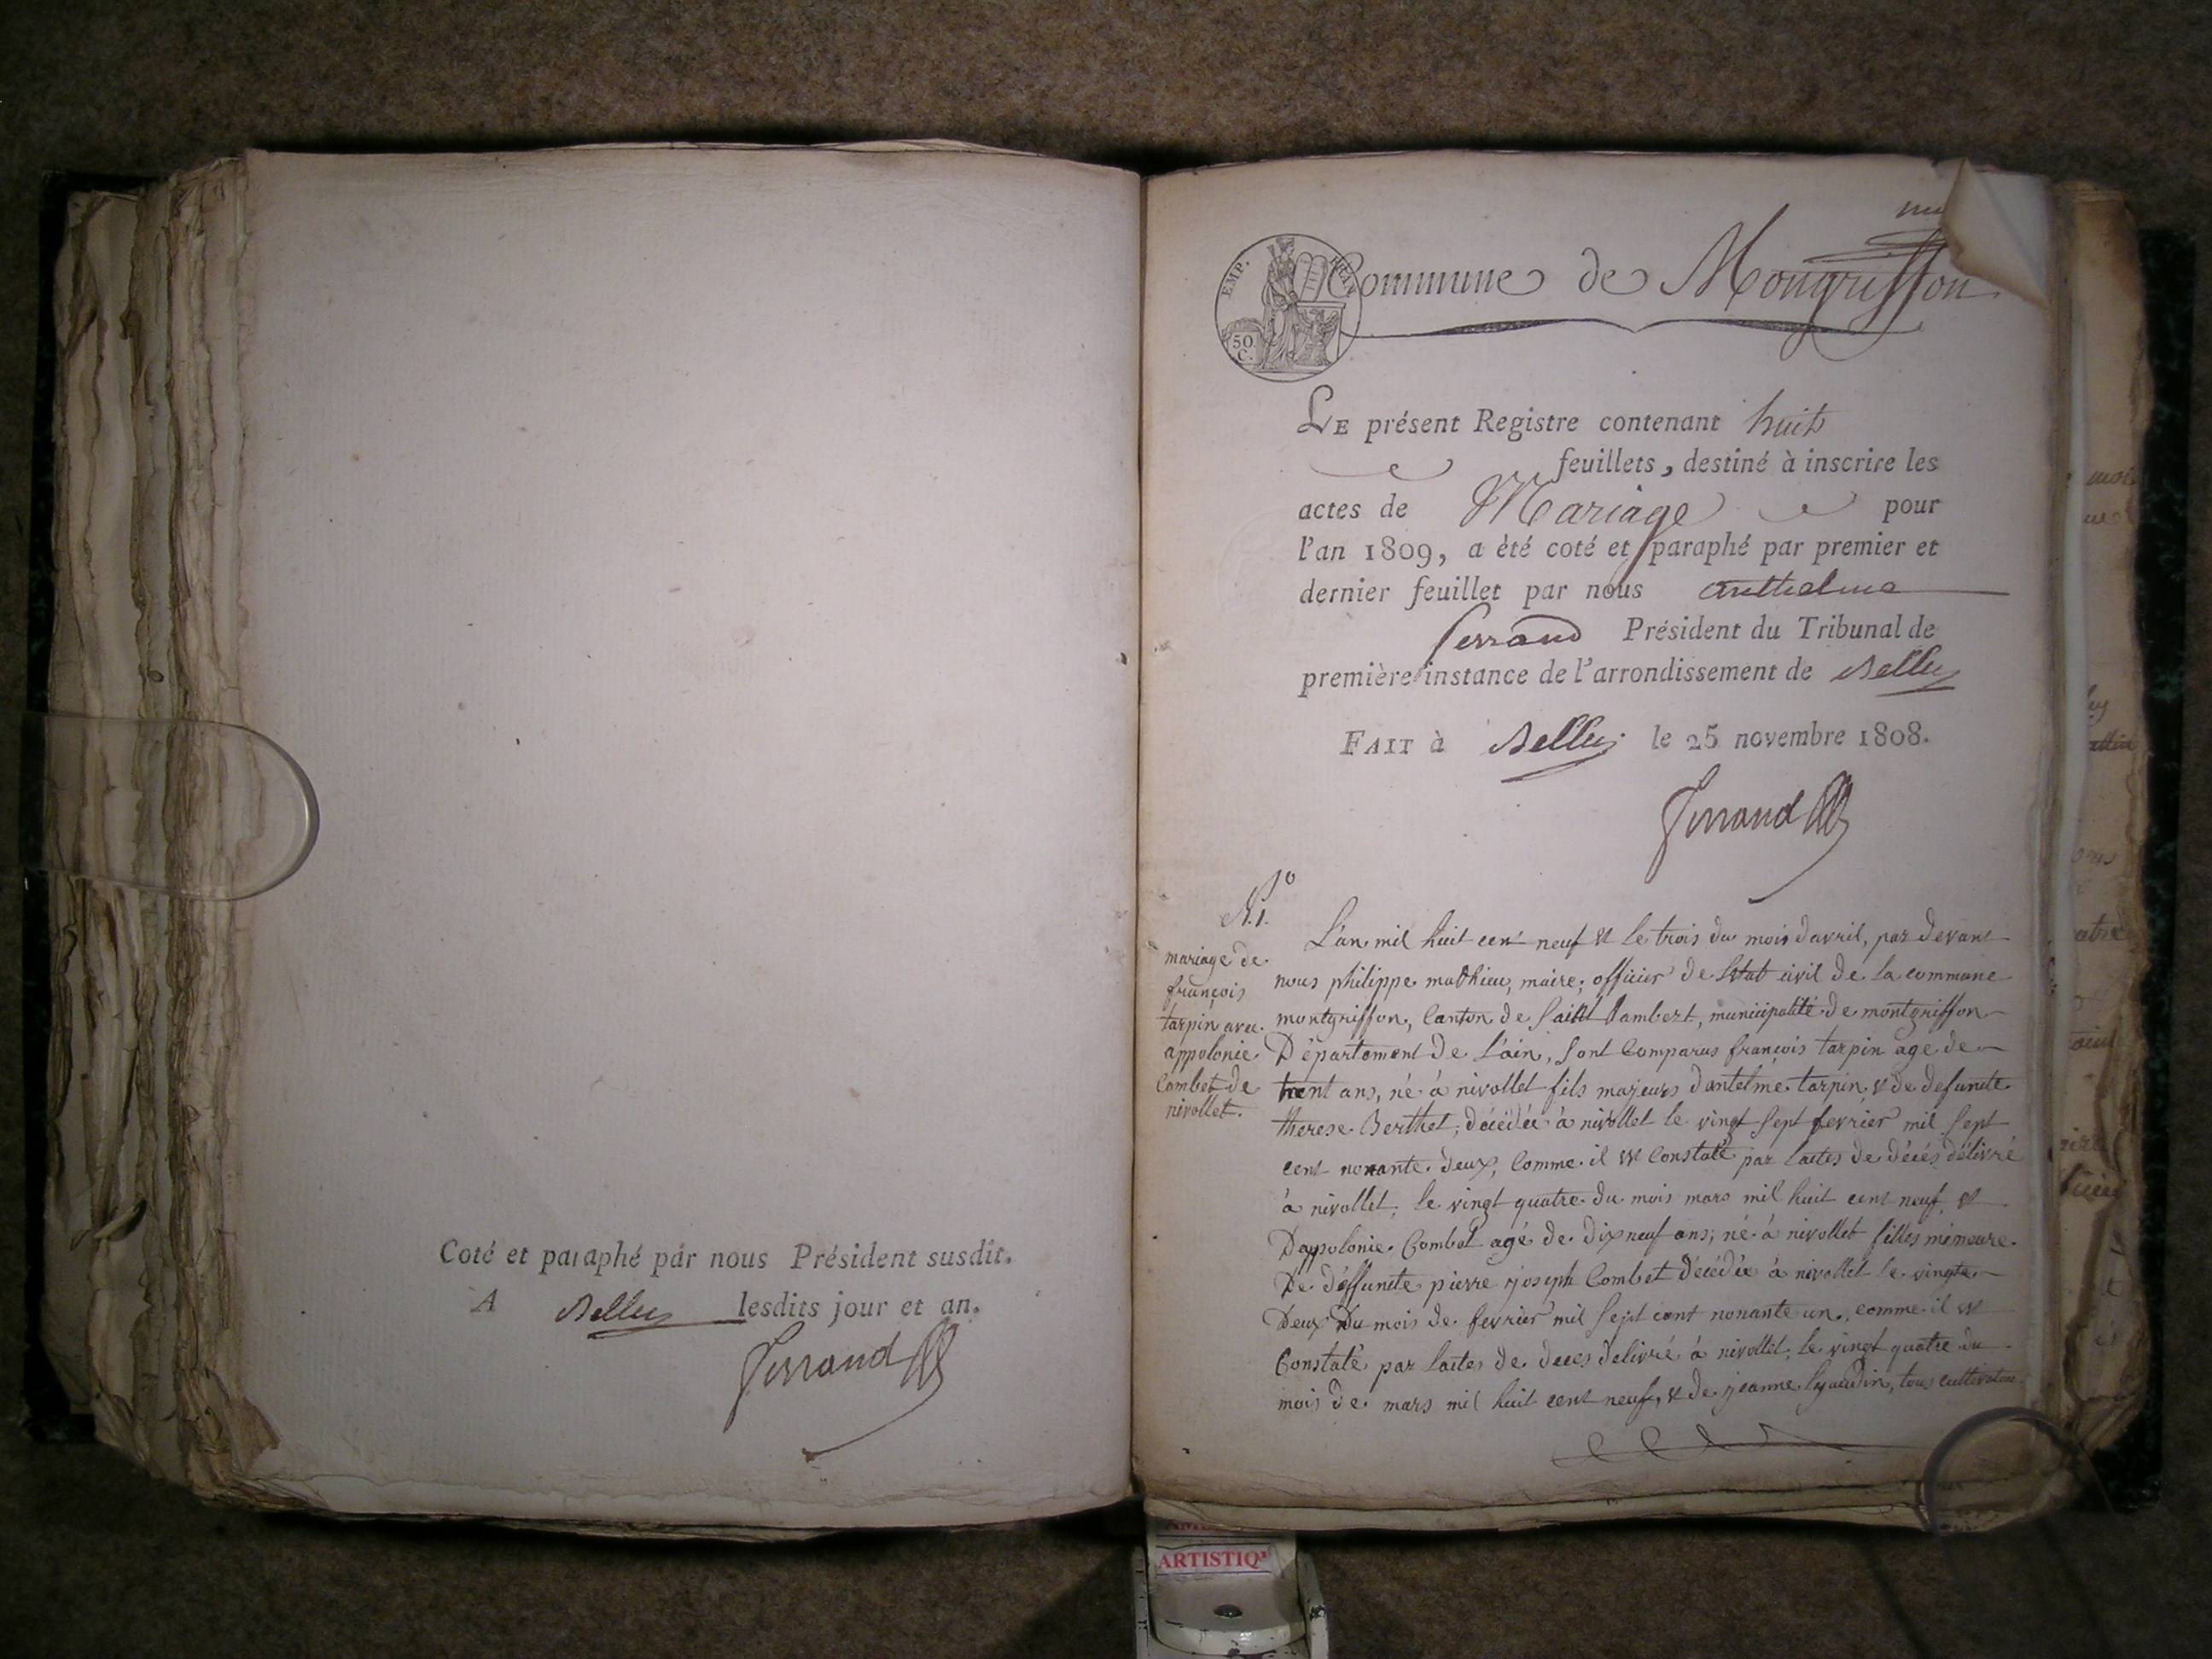 Coté et paraphé par nous Président susdit.
A Belley lesdits jour et an.
Ferrand
EMP. FRAN.
50
C.
Commune de Mongriffon
LE présent Registre contenant huit
feuillets, destiné à inscrire les
actes de Mariage pour
l'an 1809, a été coté et paraphé par premier et
dernier feuillet par nous anthelme
ferrand Président du Tribunal de
première instance de l'arrondissement de Belley
FAIT à Belley le 25 novembre 1808.
Ferrand
N.º 1.
mariage de
françois
tarpin avec
appolonie
Combet de
nivollet.
L'an mil huit cent neuf et le trois du mois davril, par devant
nous philippe mathieu, maire; officier de letat civil de la commune
montgriffon, Canton de Saint Rambert, municipalité de montgriffon
Département de L'ain, sont Comparus françois tarpin age de
trent ans, né à nivollet fils majeurs dantelme tarpin et de defunte
therese Berthet, décédée à nivollet le vingt sept fevrier mil sept
cent nonante deux, Comme il est Constaté par lactes de décés délivré
à nivollet, le vingt quatre du mois mars mil huit cent neuf, et
Dappolonie Combet agé de dix neuf ans; né à nivollet filles mineure
De déffuncte pierre joseph Combet décédée à nivollet le vingte
Deux Du mois de fevrier mil sept cent nonante un, comme il est
Constaté par lactes de deces delivré à nivollet, le vingt quatre du
mois de mars mil huit cent neuf, et de jeanne tous cultivateur
ARTISTIQ